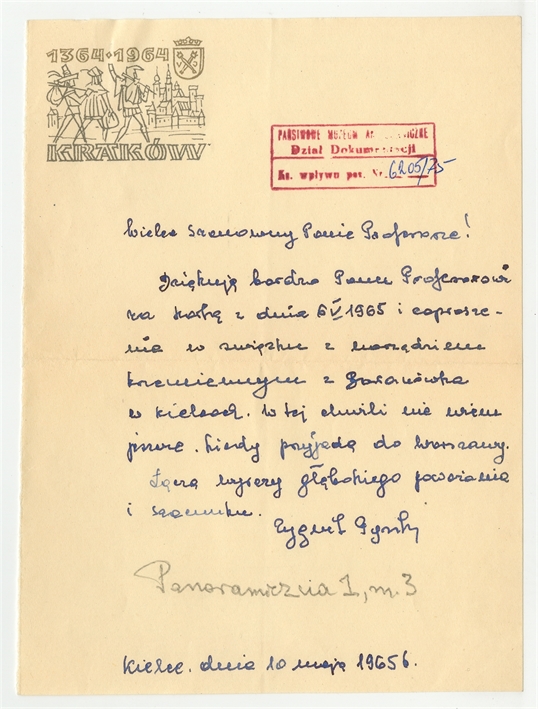 1364·1964
KRAKÓW
PAŃSTWOWE MUZEUM ARCHEOLOGICZNE
Dział Dokumentacji
Ks. wpływu poz. Nr. 6205/75
Wielce Szanowny Panie Profesorze!
Dziękuję bardzo Panu Profesorowi
za kartę z dnia 6 V 1965 i zaprosze-
nia w związku z narzędziem
krzemiennym z Baranówka
w Kielcach. W tej chwili nie wiem
jeszcze, kiedy przyjadę do Warszawy.
Łączę wyrazy głębokiego poważania
i szacunku.
Zygmunt
Panoramiczna 1, m. 3
Kielce, dnia 10 maja 1965